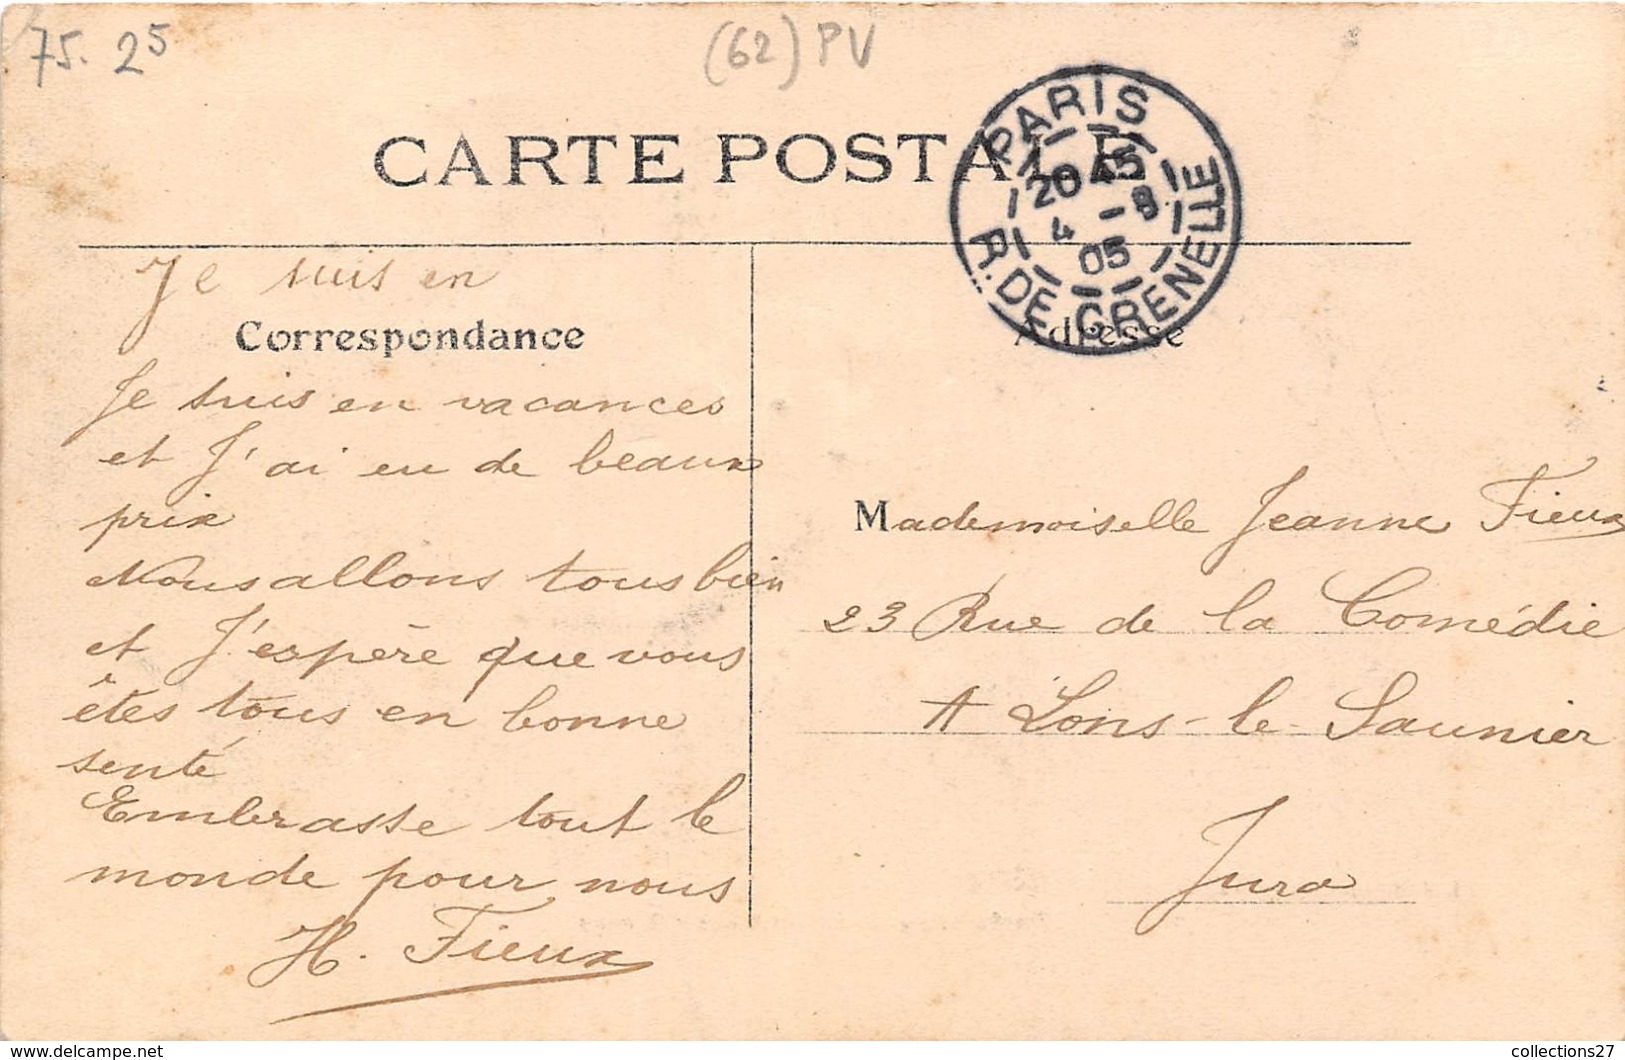 75. 25
(62) PV
CARTE POSTALE
PARIS
20 45
4 - 8
05
R. DE GRENELLE
Je suis en
Correspondance
Je suis en vacances
et J'ai eu de beaux
prix
Nous allons tous bien
et J'espère que vous
êtes tous en bonne
senté
Embrasse tout le
monde pour nous
H. Fieux
Adresse
Mademoiselle Jeanne Fieux
23 Rue de la Comédie
A Lons-le-Saunier
Jura
collections27